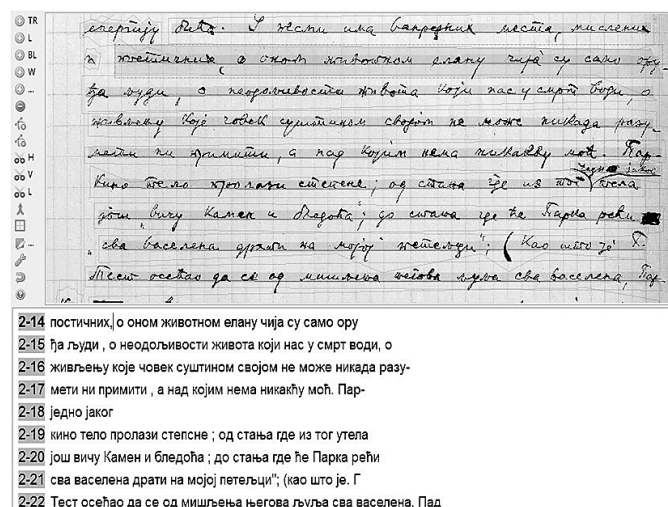 TR
L
BL
W
...
H
V
L
...
енергију бића. У песми има ванредних места, мислених
и поетичних, о оном животном елану чија су само ору-
ђа људи, о неодољивости живота који нас у смрт води, о
живљењу које човек суштином својом не може никада разу-
мети ни примити, а над којим нема никакву моћ. Пар-
једно јаког
кино тело пролази степене; од стања где из тог тела
још вичу Камен и бледоћа"; до стања где ће Парка рећи
"сва васелена дрхти на мојој петељци"; (Као што је Г.
Тест осећао да се од мишљења његова љуља сва васелена, Пар-
2-14 постичних, о оном животном елану чија су само ору
2-15 ђа људи , о неодољивости живота који нас у смрт води, о
2-16 живљењу које човек суштином својом не може никада разу-
2-17 мети ни примити , а над којим нема никакћу моћ. Пар-
2-18 једно јаког
2-19 кино тело пролази степсне ; од стања где из тог утела
2-20 још вичу Камен и бледоћа ; до стања где ће Парка рећи
2-21 сва васелена драти на мојој петељци"; (као што је. Г
2-22 Тест осећао да се од мишљења његова љуља сва васелена. Пад